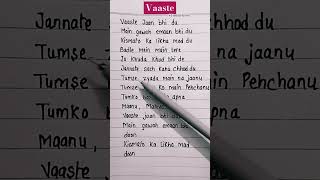 Vaaste
Jannate
Tumse
Tumse
Tumko
Maanu
Vaaste
Vaaste Jaan bhi du
Main gawah emaan bhi du
Kismato ka likha mod du
Badle mein main tere
Jo khuda khud bhi de
Jannate sach kahu chhod du
Tumse zyada main na jaanu
Tumse ko main Pehchanu
Tumko apna
Maanu,
Vaaste jaan bhi du
Main gawah emaan bhi
doon
Kismato ka likha mod
doon
na jaanu
Pehchanu